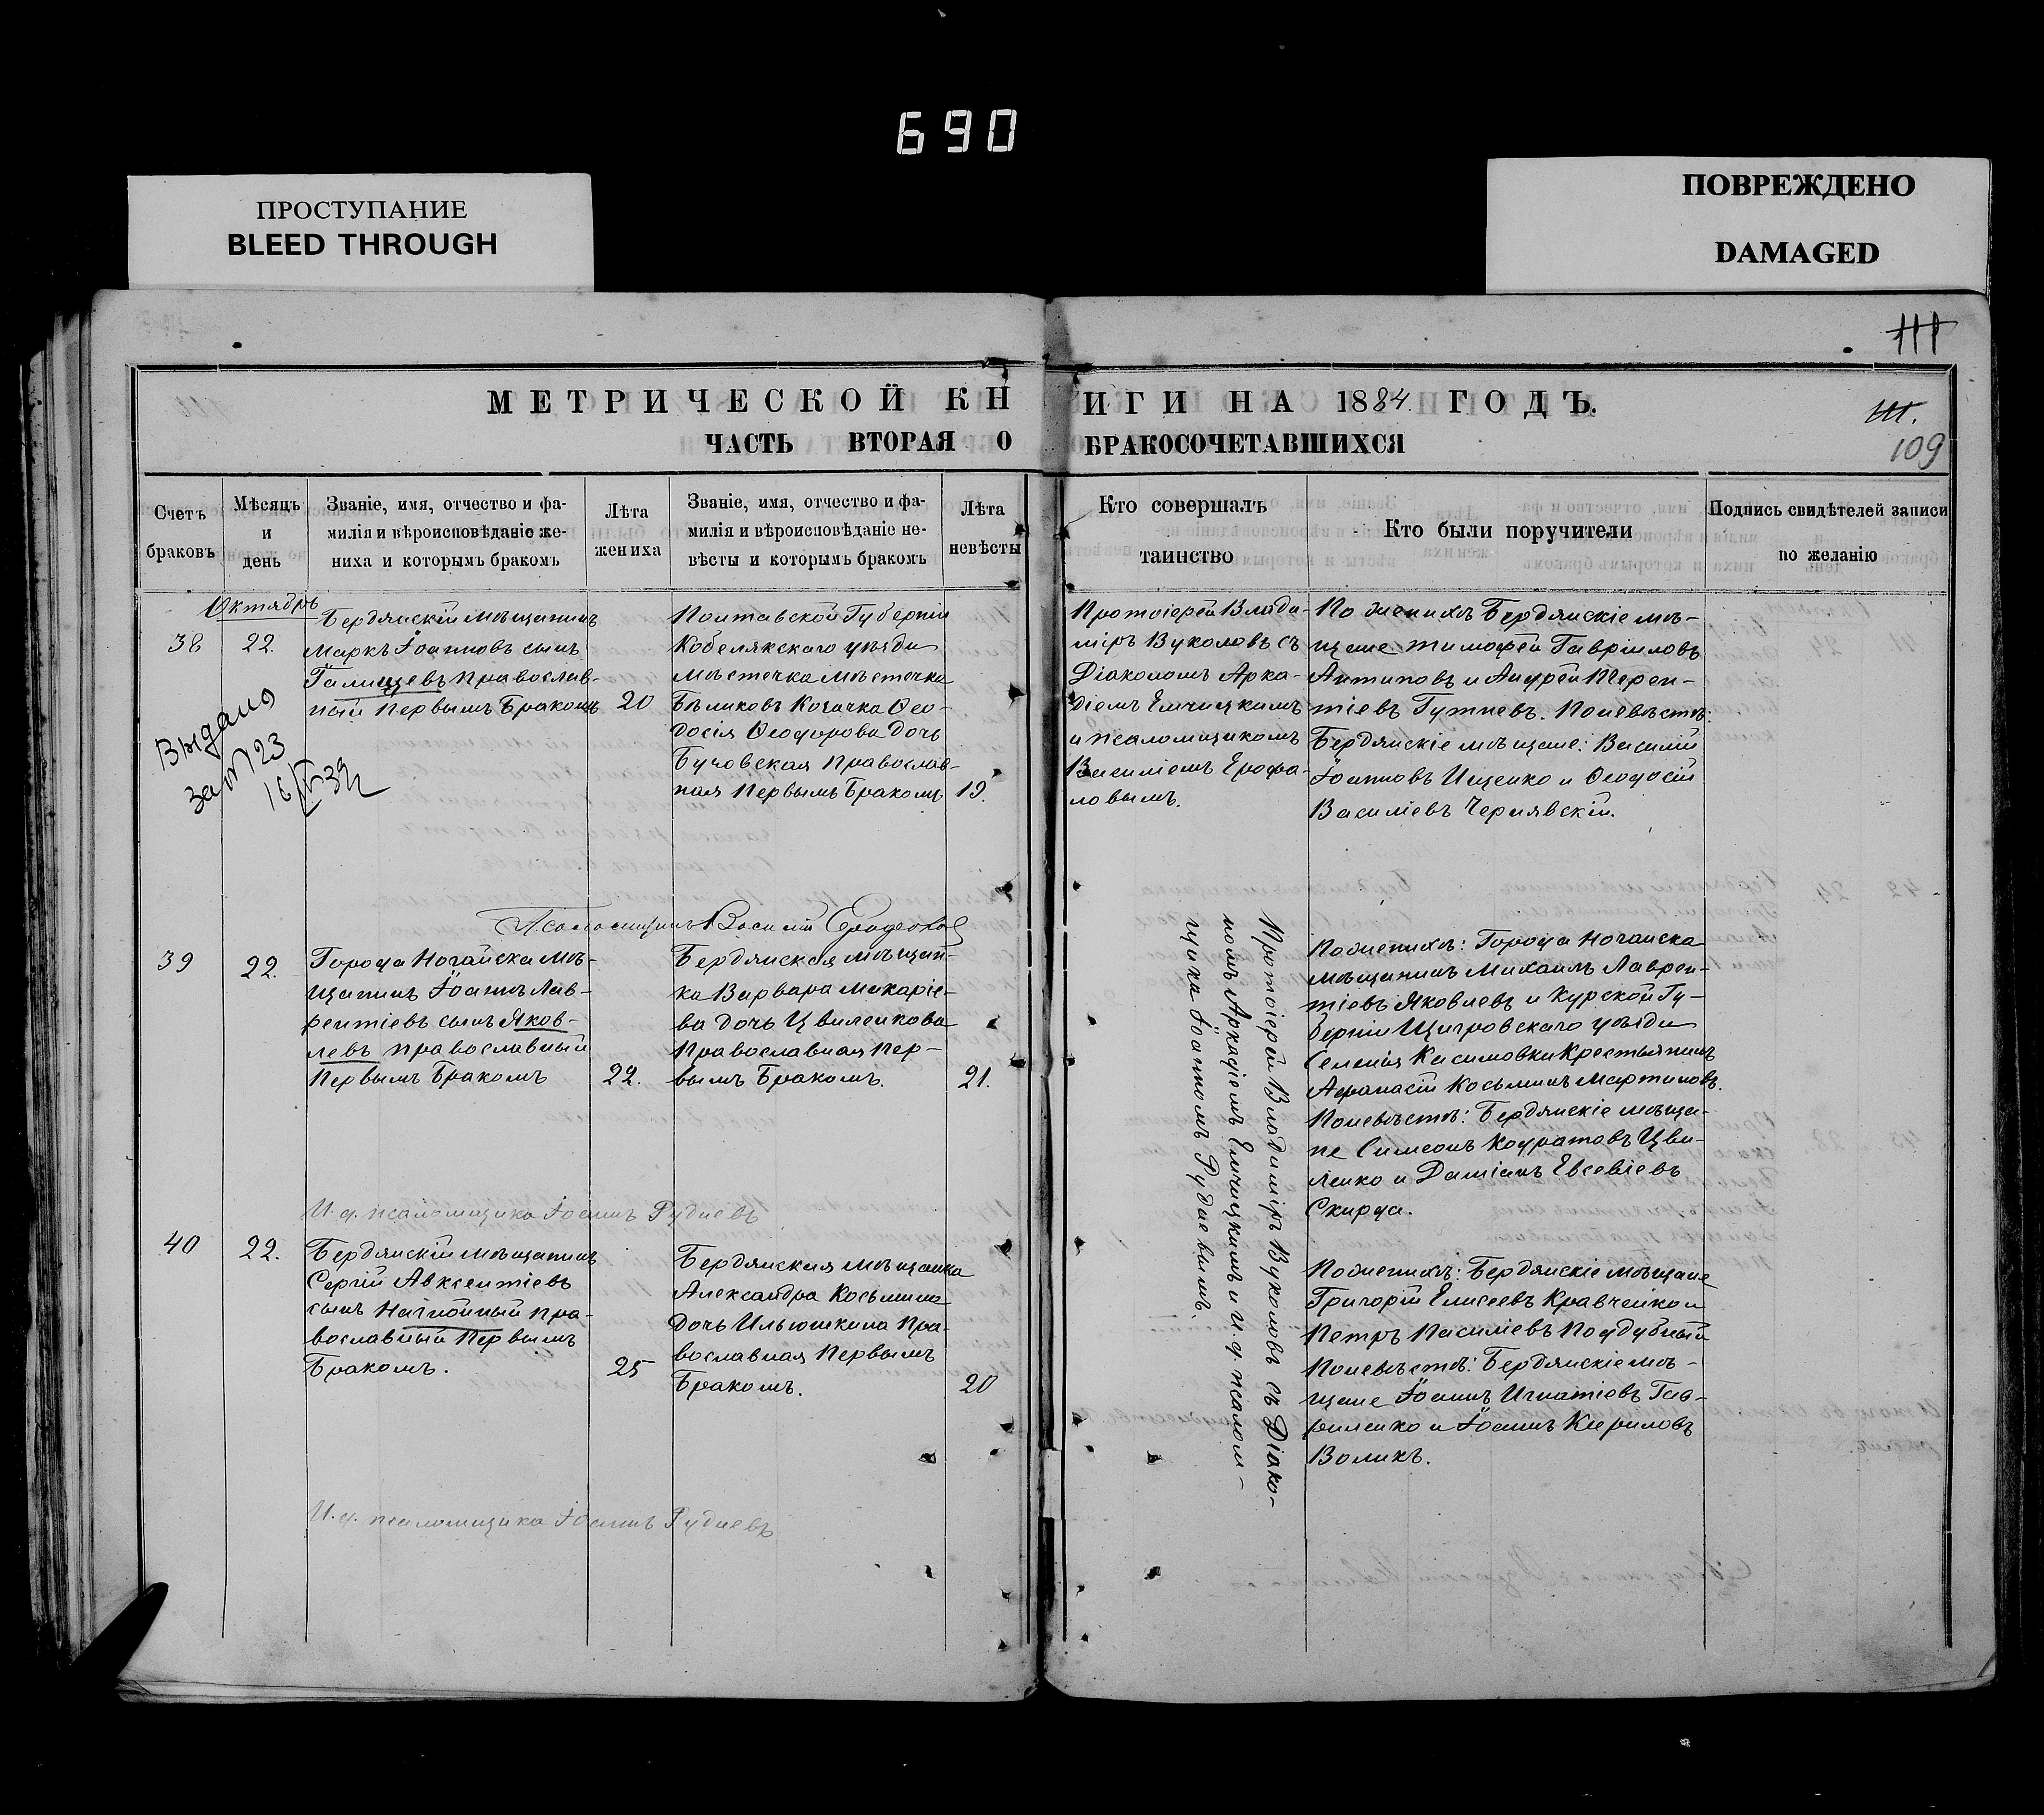 690
ПРОСТУПАНИЕ
BLEED THROUGH
ПОВРЕЖДЕНО
DAMAGED
111
МЕТРИЧЕСКОЙ КНИГИ НА 1884 ГОДЪ.
109
ЧАСТЬ ВТОРАЯ О БРАКОСОЧЕТАВШИХСЯ
Счетъ
браковъ
Мѣсяцъ
и
день
Званіе, имя, отчество и фа-
милія и вѣроисповѣданіе же-
ниха и которымъ бракомъ
Лѣта
жениха
Званіе, имя, отчество и фа-
милія и вѣроисповѣданіе не-
вѣсты и которымъ бракомъ
Лѣта
невѣсты
Кто совершалъ
таинство
Кто были поручители
Подпись свидѣтелей записи
по желанію
Октябрь
38
22.
Бердянскій мѣщанинъ
Маркъ Іоанновъ сынъ
Галищевъ православ-
ный первымъ бракомъ
20
Полтавской Губерніи
Кобелякскаго уѣзда
мѣстечка мѣстечка
Бѣликовъ Козачка Ѳео-
досія Ѳеодорова дочь
Бучовская православ-
ная первымъ бракомъ
19.
Протоіерей Влади-
міръ Вуколовъ съ
Діакономъ Арка-
діемъ Емчицкимъ
и псаломщикомъ
Василіемъ Ерофа-
ловымъ.
По женихѣ Бердянскіе мѣ-
щане Тимофей Гавріиловъ
Антиповъ и Андрей Терен-
тіевъ Гутневъ. По невѣстѣ:
Бердянскіе мѣщане: Василій
Іоанновъ Ищенко и Ѳеодосій
Василіевъ Чернявскій.
Выдано
за №123
Псаломщикъ Василій
39
22.
Города Ногайска мѣ-
щанинъ Іоаннъ Лав-
рентіевъ сынъ Яков-
левъ православный
первымъ бракомъ
22.
Бердянская мѣщан-
ка Варвара Макаріе-
ва дочь Цвиленкова
Православная пер-
вымъ бракомъ.
21.
Протоіерей Владиміръ Вуколовъ съ Діако-
номъ Аркадіемъ Емчицкимъ и И. д. псалом-
щика Іоанномъ Рудневымъ.
По женихѣ: Города Ногайска
мѣщанинъ Михаилъ Лаврен-
тіевъ Яковлевъ и Курской Гу-
берніи Щигровскаго уѣзда
Селенія Касиновки Крестьянинъ
Афанасій Косьминъ Мартиновъ.
По невѣстѣ: Бердянскіе мѣща-
не Симеонъ Кодратовъ Цви-
ленко и Даміанъ Евсевіевъ
Скирда.
И. д. псаломщика Іоаннъ Рудневъ
40
22.
Бердянскій мѣщанинъ
Сергій Авксентіевъ
сынъ Нагнойный пра-
вославный первымъ
бракомъ.
25
Бердянская мѣщанка
Александра Косьмина
дочь Ильюшкина пра-
вославная первымъ
бракомъ.
20
По женихѣ: Бердянскіе мѣщане
Григорій Елисеевъ Кравченко и
Петръ Василіевъ Поддубный
По невѣстѣ: Бердянскіе мѣ-
щане Іоаннъ Игнатіевъ Гав-
риленко и Іоаннъ Кириловъ
Воликъ.
И. д. псаломщика Іоаннъ Рудневъ